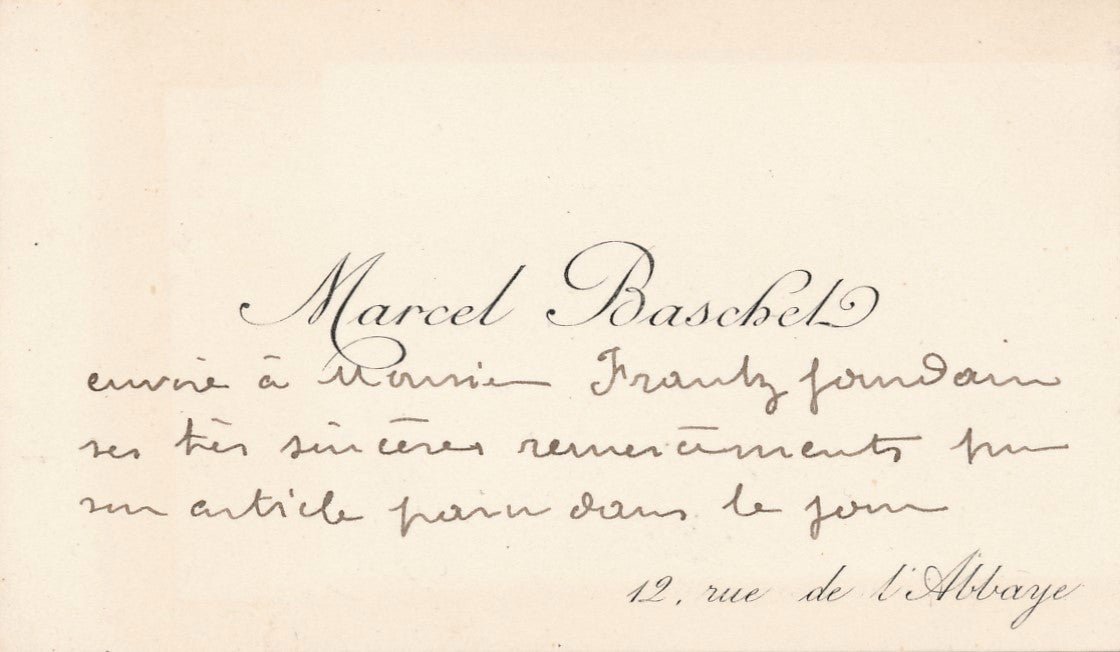 Marcel Baschet
envoie à Monsieur Frantz Jourdain
ses très sincères remerciements pour
son article paru dans le jour
12, rue de l'Abbaye